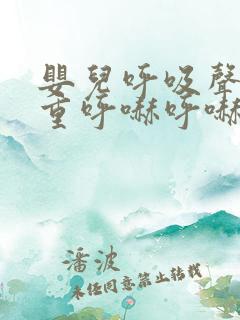 嬰兒呼吸聲
重呼嚇呼嚇
潘波
未經同意禁止轉載